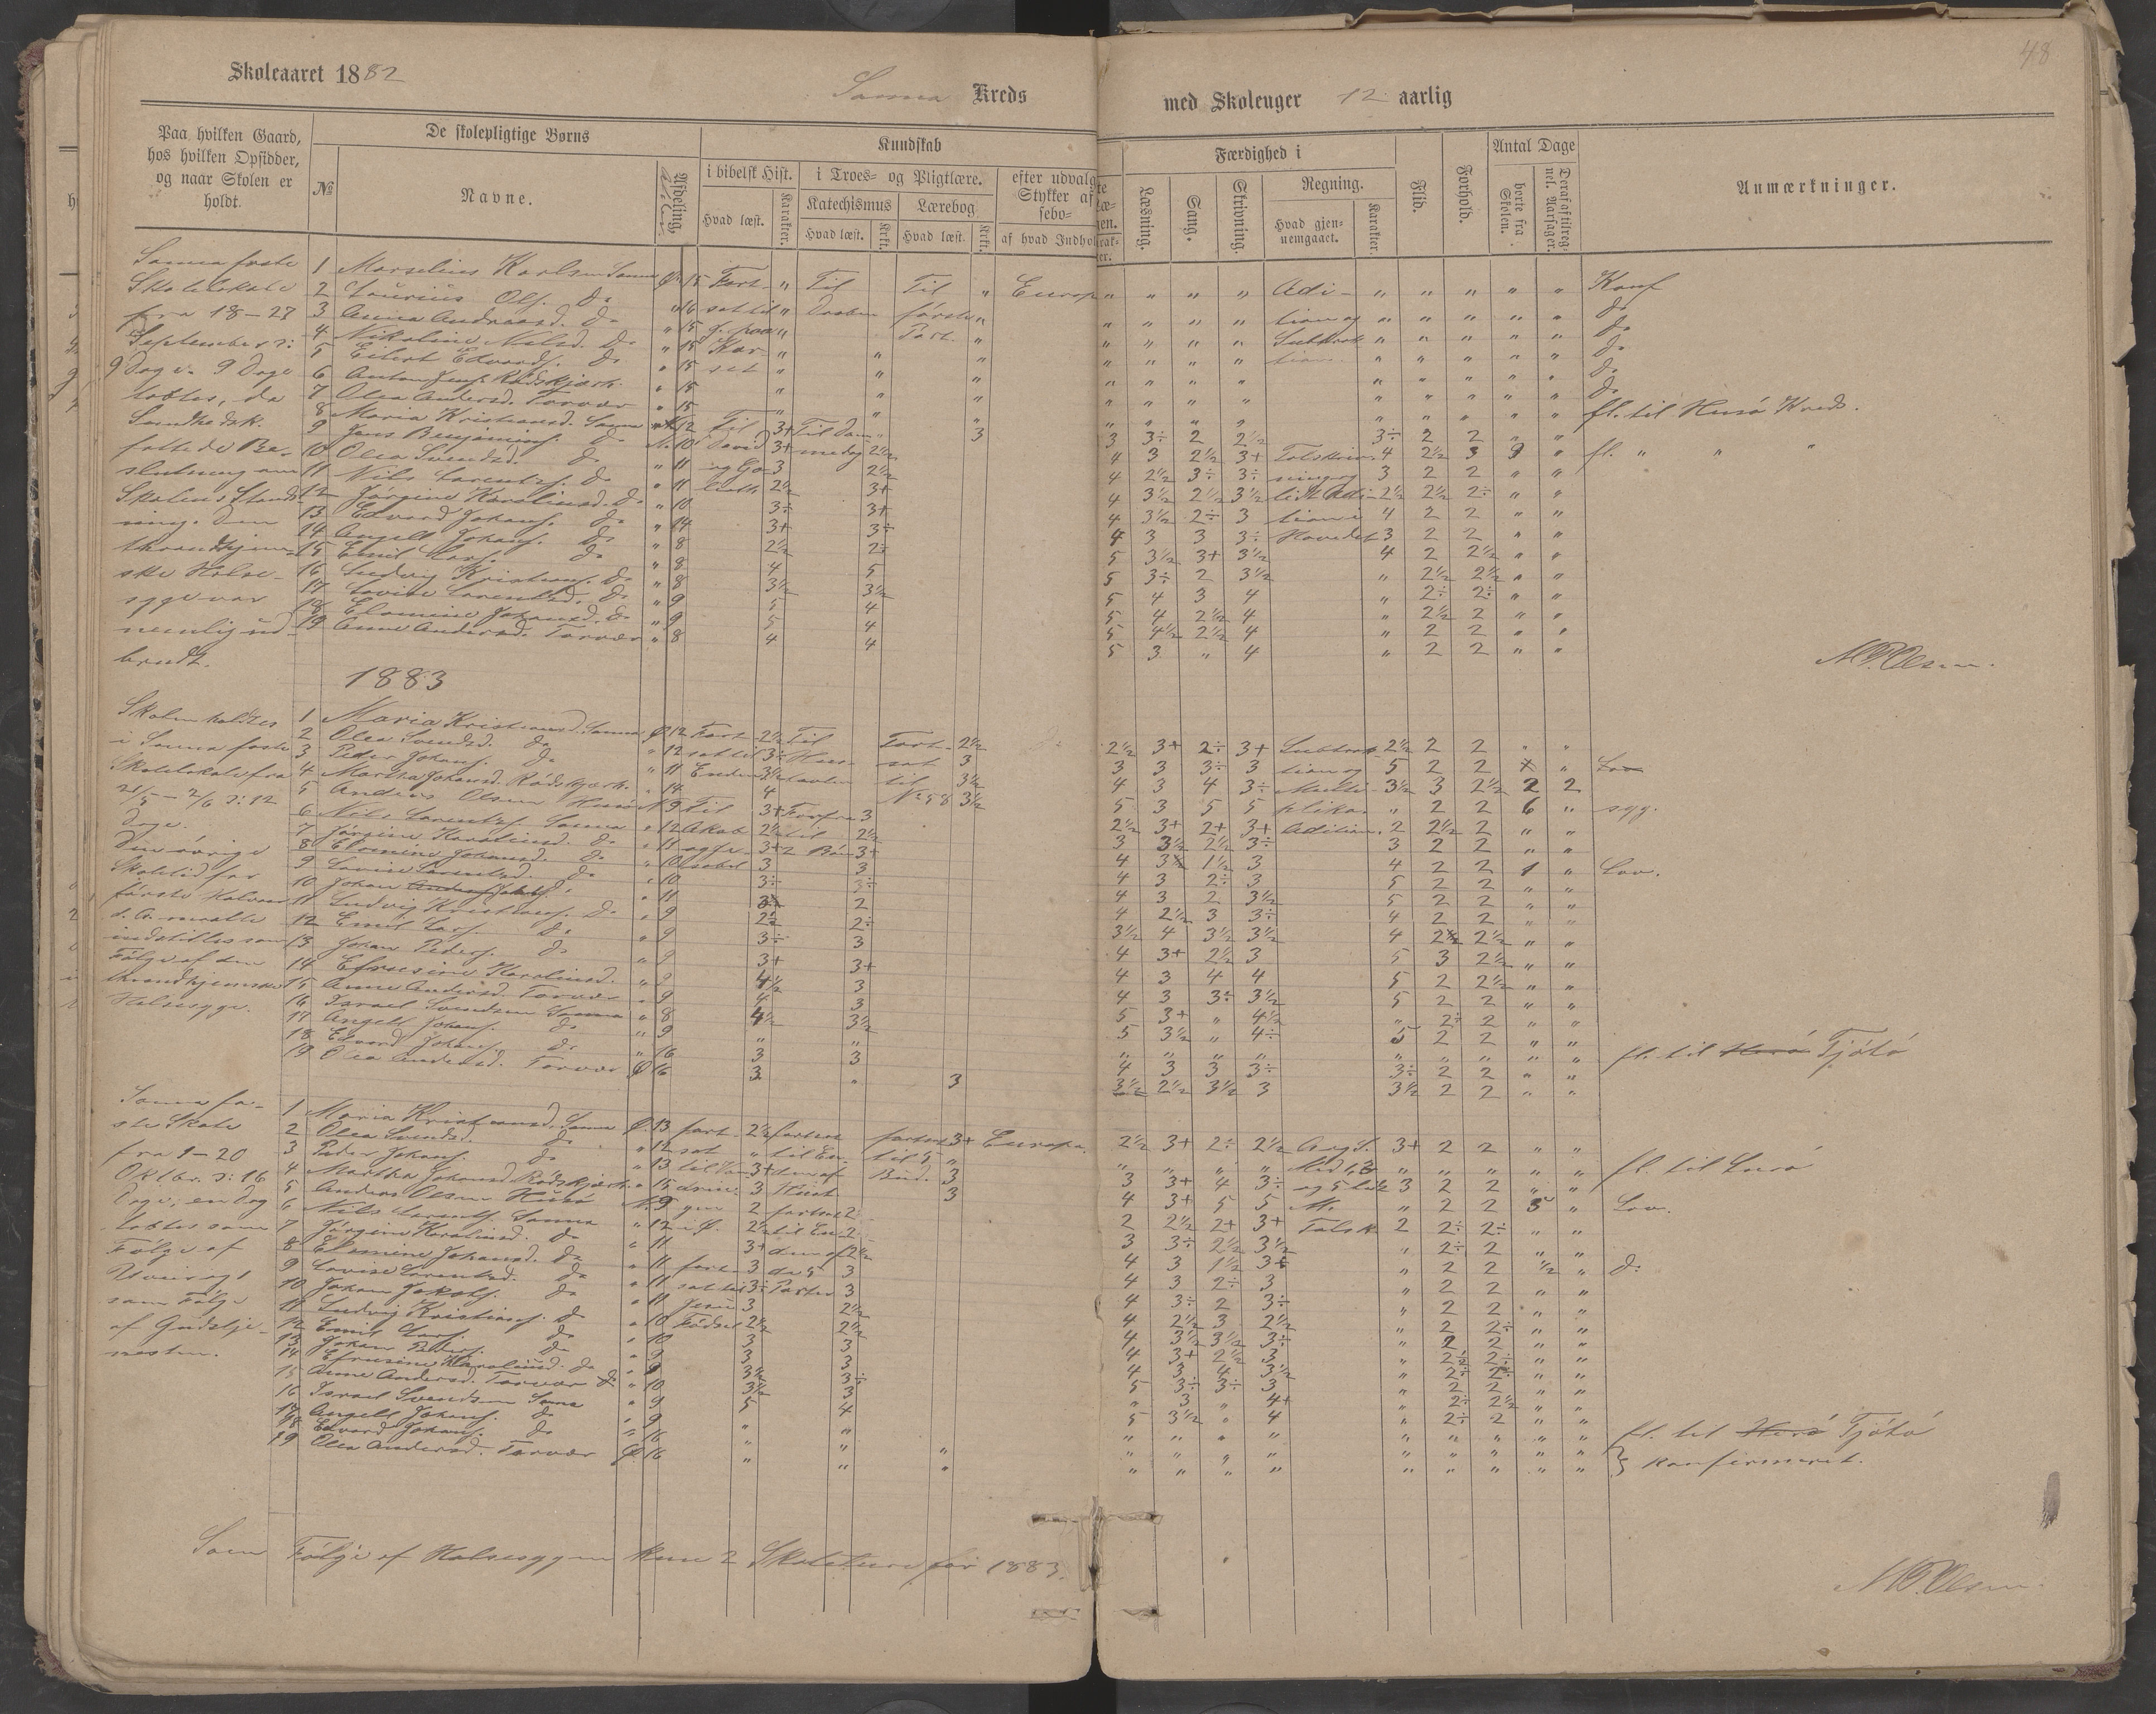 48
Skoleaaret 1882 Sanna Kreds med Skoleuger 12 aarlig
Paa hvilken Gaard, hos hvilken Opsidder, og naar Skolen er holdt.
De skolepligtige Børns
№ Navne. Afdeling.
Kundskab
i bibelsk Hist. Hvad læst. Karakter.
i Troes- og Pligtlære. Katechismus Hvad læst. Krkt. Lærebog Hvad læst. Krkt.
efter udvalgte Stykker af af hvad Indhold
Færdighed i
Læsning. Sang. Skrivning. Regning. Hvad gjennemgaaet. Karakter.
Flid. Forhold.
Antal Dage borte fra Skolen. Deraf af tilregnel. Aarsager.
Anmærkninger.
Sanna faste
Skolelokale
fra 18-27
September ɔ:
9 Dage. 9 Dage
tabtes, da
Sundhedsk.
fattede Be-
slutning om
Skolens Stands-
ning. Den
throndhjem-
ske Halse-
syge var
nemlig ud-
brudt.
1 Marselius Karlsen Sanna Ø. 15 Fort- Til Til Europa Adi- Konf
2 Laurits Ols. do 16 sat til Daaben første tion og do
3 Anna Andreasd. do 15 Part. Subtrak- do
4 Nikoline Nilsd. do 15 Kor- tion. do
5 Eilert Edvards. do 15 set do
6 Anton Jens. Rødskjær 15 do
7 Olea Andersd. Torvær 15 fl. til Husø Kreds.
8 Maria Kristiansd. Sanna 12 Til 3+ Til Dom 3 3 3÷ 2 2½ 3÷ 2 2
9 Jens Benjamins. do N. 10 David 3+ 2½ 4 3 2½ 3+ Talskriv- 4 2½ 3 9 fl. " " "
10 Olea Svendsd. do 11 og Go- 3 2½ 4 2½ 3÷ 3÷ ning og 3 2 2
11 Nils Lorents. do 11 liath 2½ 3+ 4 3½ 2½ 3½ lidt Adi- 2½ 2½ 2÷
12 Jørgine Karolinusd. do 10 3÷ 3+ 4 3½ 2÷ 3 tion i 4 2 2
13 Edvard Johans. do 14 3+ 3÷ 4 3 3 3÷ Hovedet 3 2 2
14 Angell Johans. do 8 2½ 2÷ 5 3½ 3+ 3½ 4 2 2½
15 Emil Lars. do 8 4 5 5 3÷ 2 3½ 2½ 2½
16 Ludvig Kristians. do 8 3½ 3½ 5 4 3 4 2÷ 2÷
17 Lovise Lorentsd. do 9 5 4 5 4 2½ 4 2½ 2
18 Elomine Johansd. do 9 5 4 5 4½ 2½ 4 2 2
19 Anne Andersd. Torvær 8 4 4 5 3 " 4 2 2
M.P. Olsen.
1883
Skolen holdtes
i Sanna faste
Skolelokale fra
21/5 - 2/6 ɔ: 12
Dage.
Den øvrige
Skoletid for
første Halvaar
d. A. maatte
indstilles som
Følge af den
throndhjemske
Halsesyge.
1 Maria Kristiansd. Sanna Ø. 12 Fort- 2½ Til Fort- 2½ 2½ 3+ 2÷ 3+ Subtrak- 2½ 2 2
2 Olea Svendsd. do 12 sat til 3÷ Hus- sat 3 3 3 3÷ 3 tion og 5 2 2
3 Peder Johans. do 11 Enden 3½ tavlen til 3½ 4 3 4 3÷ Multi- 3½ 3 2½ 2 2
4 Martha Johansd. Rødskjær. 14 4 № 58 3½ 5 3 5 5 plika. " 2 2 6 " syg.
5 Anders Olsen Husø N. 9 Til 3+ Forfra 3 2½ 3+ 2+ 3+ Adition. 2 2½ 2
6 Nils Lorents. Sanna 12 Akab 2½ til 2½ 3 3½ 2½ 3÷ 3 2 2
7 Jørgine Karolinusd. do 11 og Je- 3+ 2 Bøn 3+ 4 3½ 1½ 3 4 2 2 1 " Lov.
8 Elomine Johansd. do 10 sabel 3 3 4 3 2÷ 3 5 2 2
9 Lovise Lorentsd. do 10 3÷ 3÷ 4 3 2 3½ 5 2 2
10 Johan Jakobs. do 11 2 4 2½ 3 3÷ 4 2 2
11 Ludvig Kristians. do 9 2½ 2÷ 3½ 4 3½ 3½ 4 2½ 2½
12 Emil Lars. do 9 3÷ 3 4 3+ 2½ 3 5 3 2½
13 Johan Peders. do 9 3+ 3+ 4 3 4 4 5 2 2½
14 Efrosine Karolinusd. 8 4½ 3 4 3 3÷ 3½ 5 2 2
15 Anne Andersd. Torvær 9 4 3 5 3+ " 4½ " 2÷ 2
16 Israel Svendsen Sanna 8 4½ 3½ 5 3½ " 4÷ 5 2 2
17 Angell Johans. do 9 " " fl. til Husø Tjøtø
18 Edvard Johans. do 16 3 3 4 3 3 3÷ 3÷ 2 2
19 Olea Andersd. Torvær Ø 16 3 " 3 3½ 2½ 3½ 3 3½ 2 2
Sanna fa-
ste Skole
fra 9-20
Oktbr. ɔ: 16
Dage; en Dag
tabtes som
Følge af
Uveir og 1
som Følge
af Gudstje-
nesten.
1 Maria Kristiansd. Sanna Ø. 13 fort- 2½ fortsat fortsat 3+ Europa. 2½ 3+ 2÷ 2½ 3+ 2 2
2 Olea Svendsd. do 12 sat " til En- til 5 " fl. til Lurø
3 Peder Johans. do 13 3+ den af Bud. 3 3 3+ 4 3÷ 3 2 2
4 Martha Johansd. Rødskjær. 15 3 Hust. 3 4 3+ 5 5 " 2 2 3 " Lov.
5 Anders Olsen Husø N. 9 2 fortsat 2÷ 2 2½ 2+ 3+ Talsk. 2 2÷ 2÷
6 Nils Lorents. Sanna 12 2½ til En- 2 3 3÷ 2½ 3½ " 2÷ 2
7 Jørgine Karolinusd. do 11 3+ den af 2½ 4 3 1½ " 2 2 ½ " do
8 Elomine Johansd. do 11 fort- 3 de 5 3 4 3 2÷ 3 " 2 2
9 Lovise Lorentsd. do 11 sat til 3÷ Parter 3 4 3÷ 2 3÷ " 2 2
10 Johan Jakobs. do 11 Jesu 3 2½ 4 2½ 3 2½ " 2 2÷
11 Ludvig Kristians. do 10 Fødsel 2½ 2½ 4 3½ 3½ 3÷ " 2 2
12 Emil Lars. do 10 3 3 4 3+ 2½ 3
13 Johan Peders. do 9 3 3 4 3 4 3½
14 Efrosine Karolinusd. do 9 3½ 3÷ 5 3÷ 3÷ 3 " 2 2
15 Anne Andersd. Torvær 10 3½ 3 " 3 " 4+ " 2÷ 2½
16 Israel Svendsen Sanna 9 5 4 5 3½ " 4 " 2÷ 2
17 Angell Johans. do 9 fl. til Husø Tjøtø
18 Edvard Johans. do 16
19 Olea Andersd. Torvær Ø. 16 } konfirmeret.
Som Følge af Halsesygen kun 2 Skoleture for 1883.
M.P. Olsen.